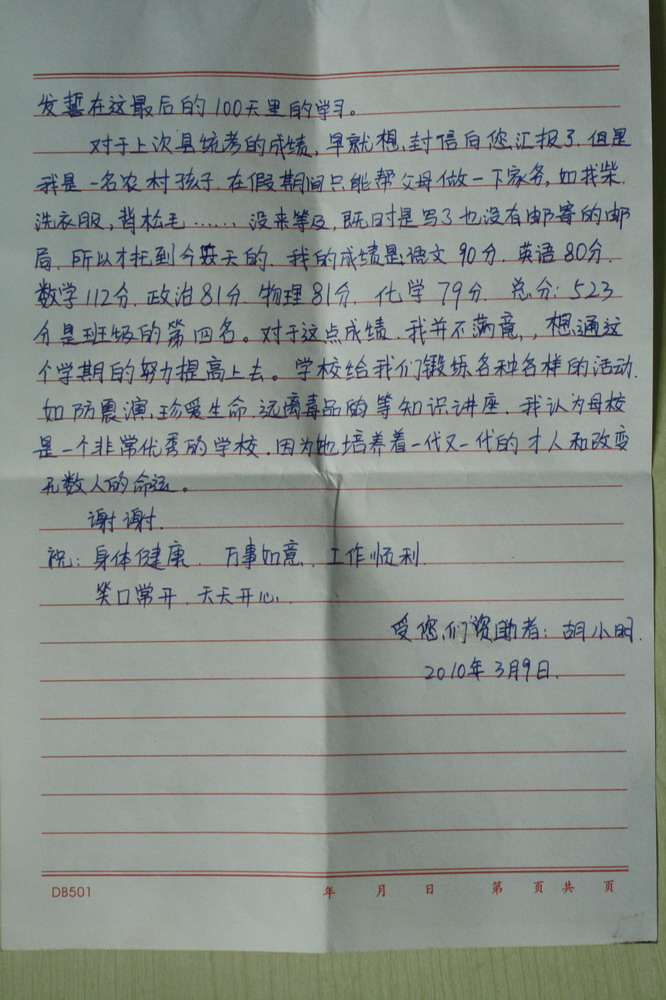 发誓在这最后的100天里的学习。
对于上次县统考的成绩,早就想,封信向您汇报了.但是
我是一名农村孩子.在假期间只能帮父母做一下家务,如找柴.
洗衣服,背松毛……没来等及,既时是写了也没有邮寄的邮
局.所以才托到今天的.我的成绩是:语文90分.英语80分.
数学112分.政治81分.物理81分.化学79分.总分:523
分是班级的第四名。对于这点成绩.我并不满意,,想通这
个学期的努力提高上去。学校给我们锻练各种各样的活动.
如防震演,珍爱生命.远离毒品的等知识讲座、我认为母校
是一个非常优秀的学校,因为她培养着一代又一代的才人和改变
无数人的命运。
谢谢.
祝:身体健康.万事如意、工作顺利.
笑口常开.天天开心.
受您们资助者:胡小明.
2010年3月9日.
DB501 年 月 日 第 页 共 页